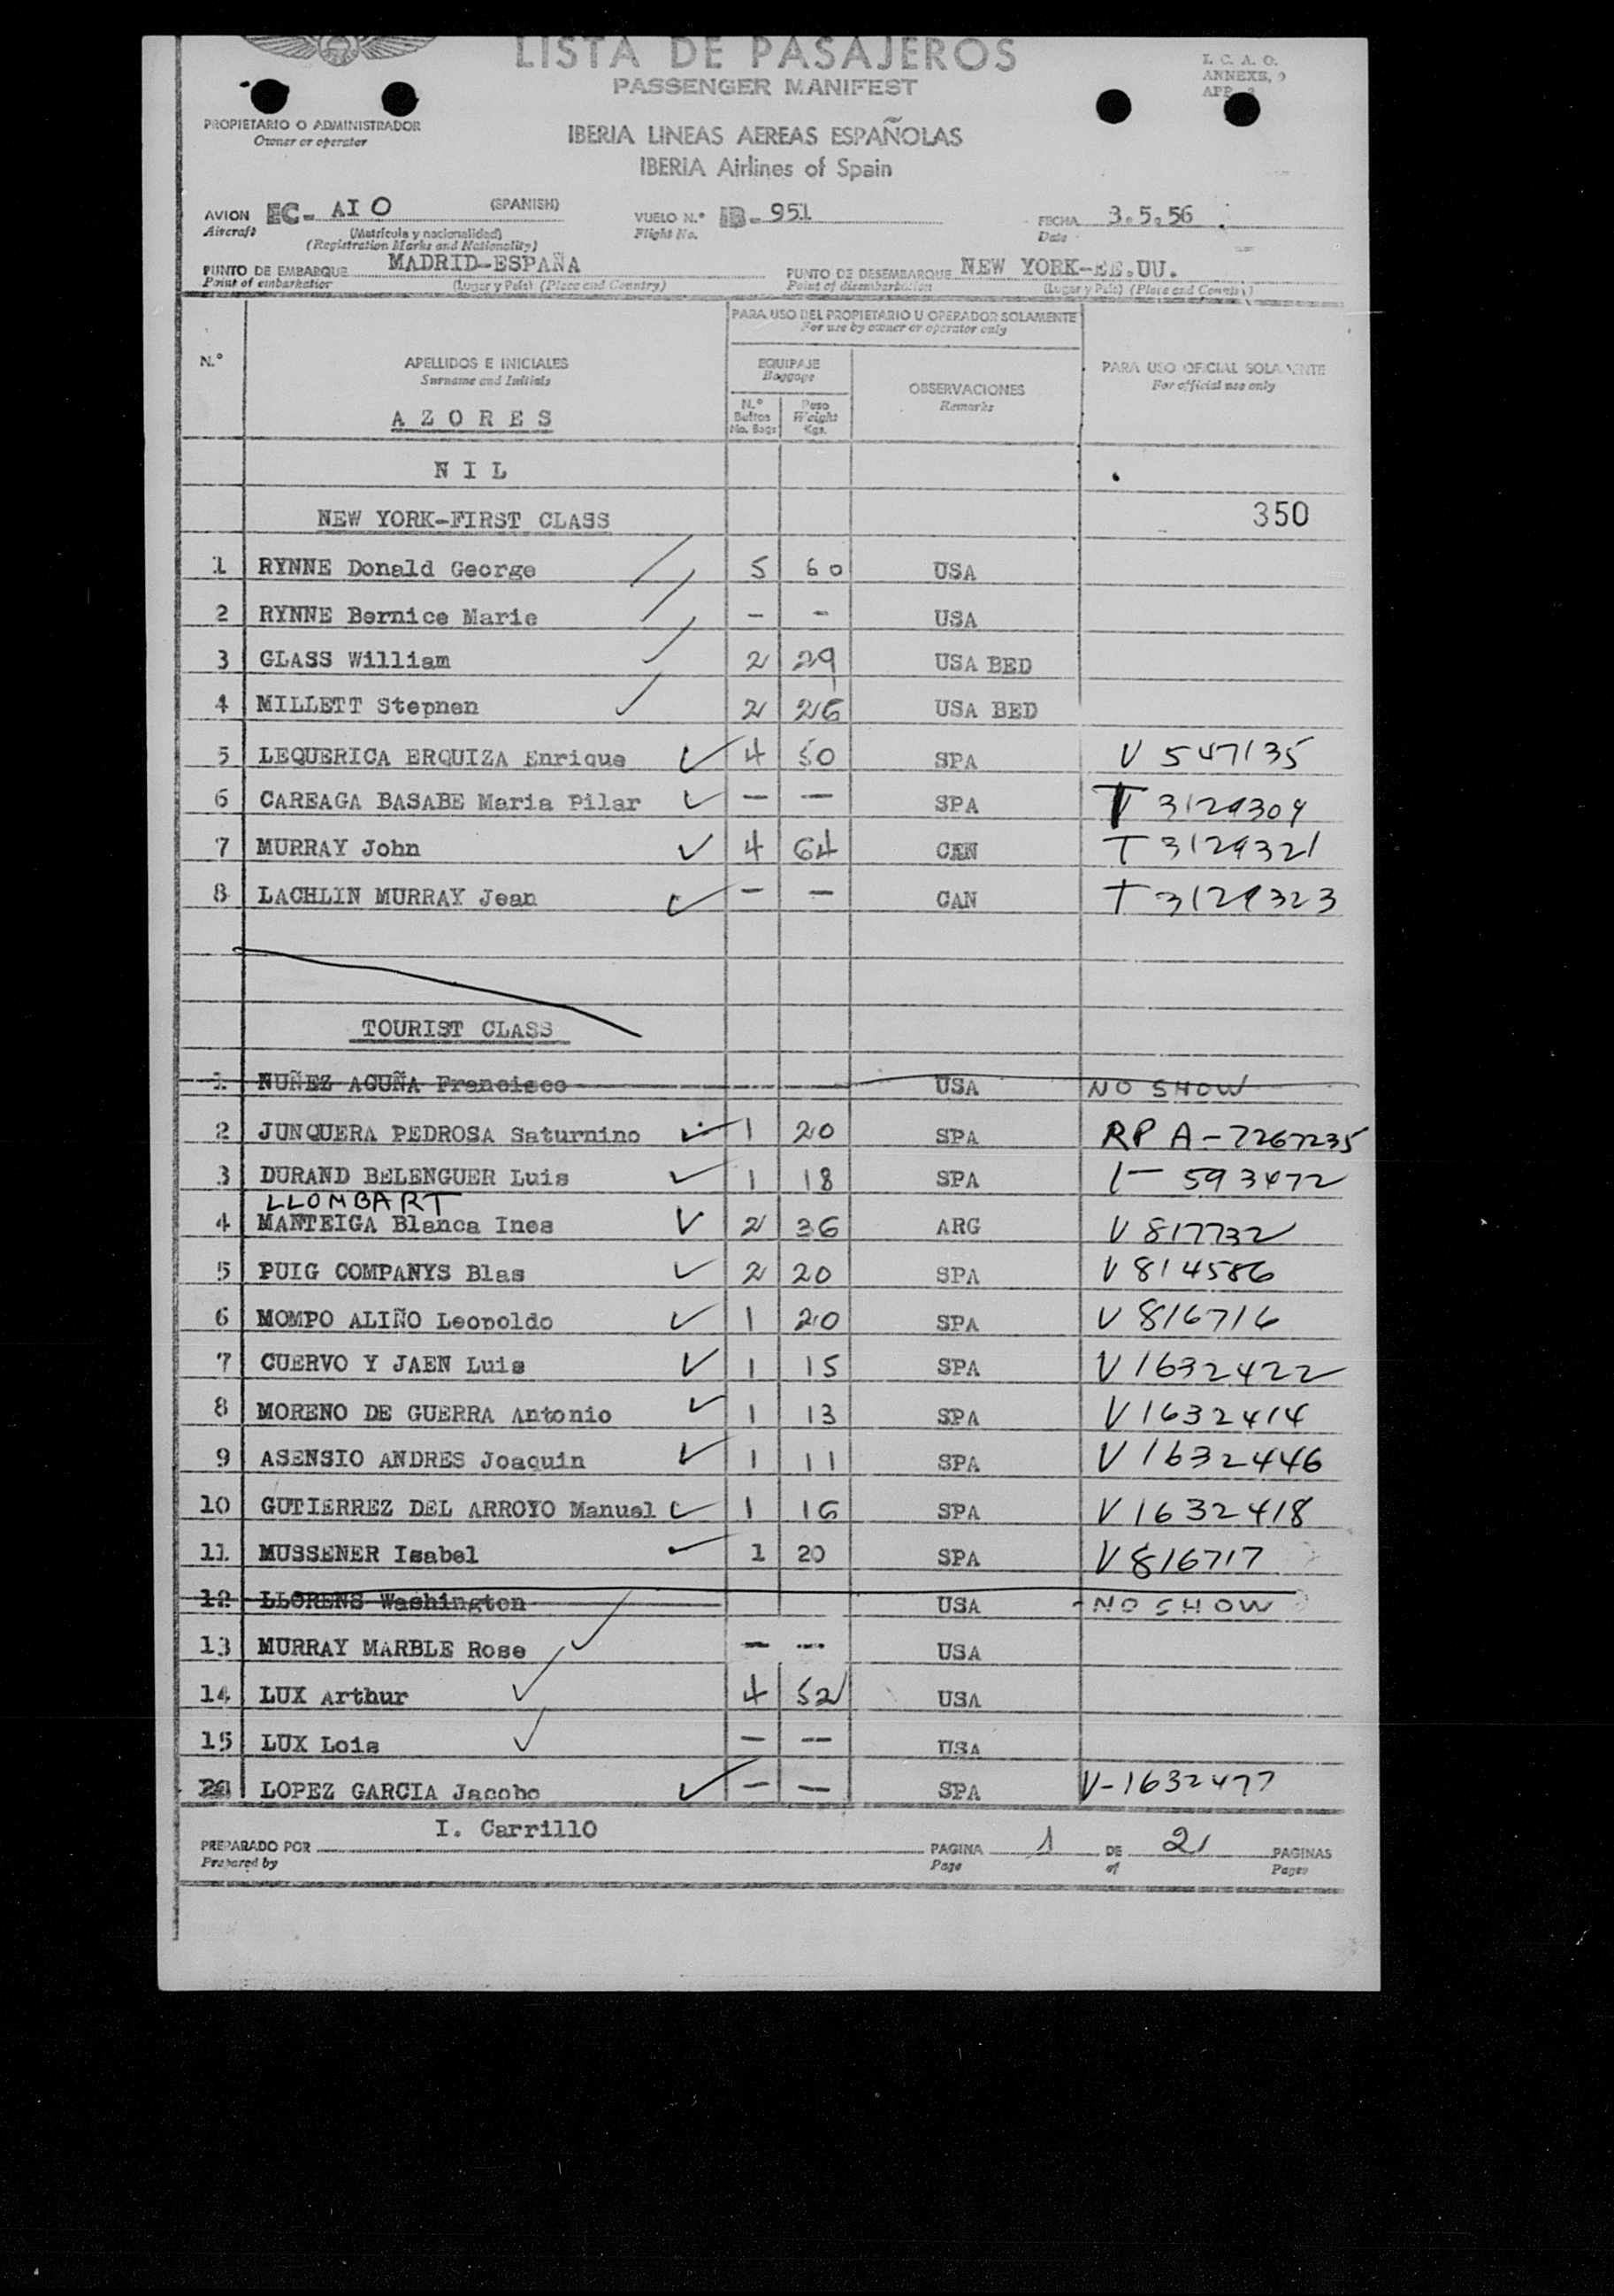 LISTA DE PASAJEROS
PASSENGER MANIFEST
I. C. A. O.
ANNEXE, 9
APP.
PROPIETARIO O ADMINISTRADOR
Owner or operator
IBERIA LINEAS AEREAS ESPAÑOLAS
IBERIA Airlines of Spain
AVION EC- AIO (SPANISH) VUELO N.º IB- 951 FECHA 3.5.56
Aircraft (Matrícula y nacionalidad) Flight No. Date
(Registration Marks and Nationality)
PUNTO DE EMBARQUE MADRID-ESPAÑA PUNTO DE DESEMBARQUE NEW YORK-EE.UU.
Point of embarkation (Lugar y País) (Place and Country) Point of disembarkation (Lugar y País) (Place and Country)
PARA USO DEL PROPIETARIO U OPERADOR SOLAMENTE
For use by owner or operator only
N.º APELLIDOS E INICIALES EQUIPAJE OBSERVACIONES PARA USO OFICIAL SOLAMENTE
Surname and Initials Baggage Remarks For official use only
A Z O R E S N.º Bultos No. Bags Peso Weight Kgs.
N I L
NEW YORK-FIRST CLASS 350
1 RYNNE Donald George 5 60 USA
2 RYNNE Bernice Marie - - USA
3 GLASS William 2 29 USA BED
4 MILLETT Stephen 2 26 USA BED
5 LEQUERICA ERQUIZA Enrique 4 50 SPA V 547135
6 CAREAGA BASABE Maria Pilar - - SPA T 3129304
7 MURRAY John 4 64 CAN T 3129321
8 LACHLIN MURRAY Jean - - CAN T 3129323
TOURIST CLASS
1 NUÑEZ ACUÑA Francisco USA NO SHOW
2 JUNQUERA PEDROSA Saturnino 1 20 SPA RP A-7267235
3 DURAND BELENGUER Luis 1 18 SPA 593472
LLOMBART
4 MANTEIGA Blanca Ines 2 36 ARG V 817732
5 PUIG COMPANYS Blas 2 20 SPA V 814586
6 MOMPO ALIÑO Leopoldo 1 20 SPA V 816716
7 CUERVO Y JAEN Luis 1 15 SPA V 1632422
8 MORENO DE GUERRA Antonio 1 13 SPA V 1632414
9 ASENSIO ANDRES Joaquin 1 11 SPA V 1632446
10 GUTIERREZ DEL ARROYO Manuel 1 16 SPA V 1632418
11 MUSSENER Isabel 1 20 SPA V 816717
12 LLORENS Washington USA -NO SHOW
13 MURRAY MARBLE Rose - - USA
14 LUX Arthur 4 52 USA
15 LUX Lois - - USA
LOPEZ GARCIA Jacobo - - SPA V-1632477
I. Carrillo
PREPARADO POR PAGINA 1 DE 2 PAGINAS
Prepared by Page of Pages